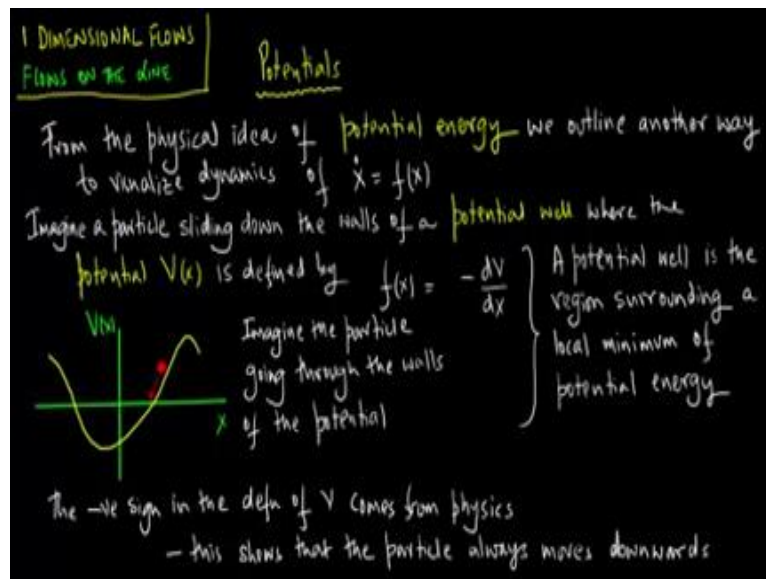 1 DIMENSIONAL FLOWS
FLOWS ON THE LINE
Potentials
From the physical idea of potential energy we outline another way
to visualize dynamics of ẋ = f(x)
Imagine a particle sliding down the walls of a potential well where the
potential V(x) is defined by f(x) = - dV/dx
A potential well is the
region surrounding a
local minimum of
potential energy
V(x)
x
Imagine the particle
going through the walls
of the potential
The -ve sign in the defn of V comes from physics
- this shows that the particle always moves downwards